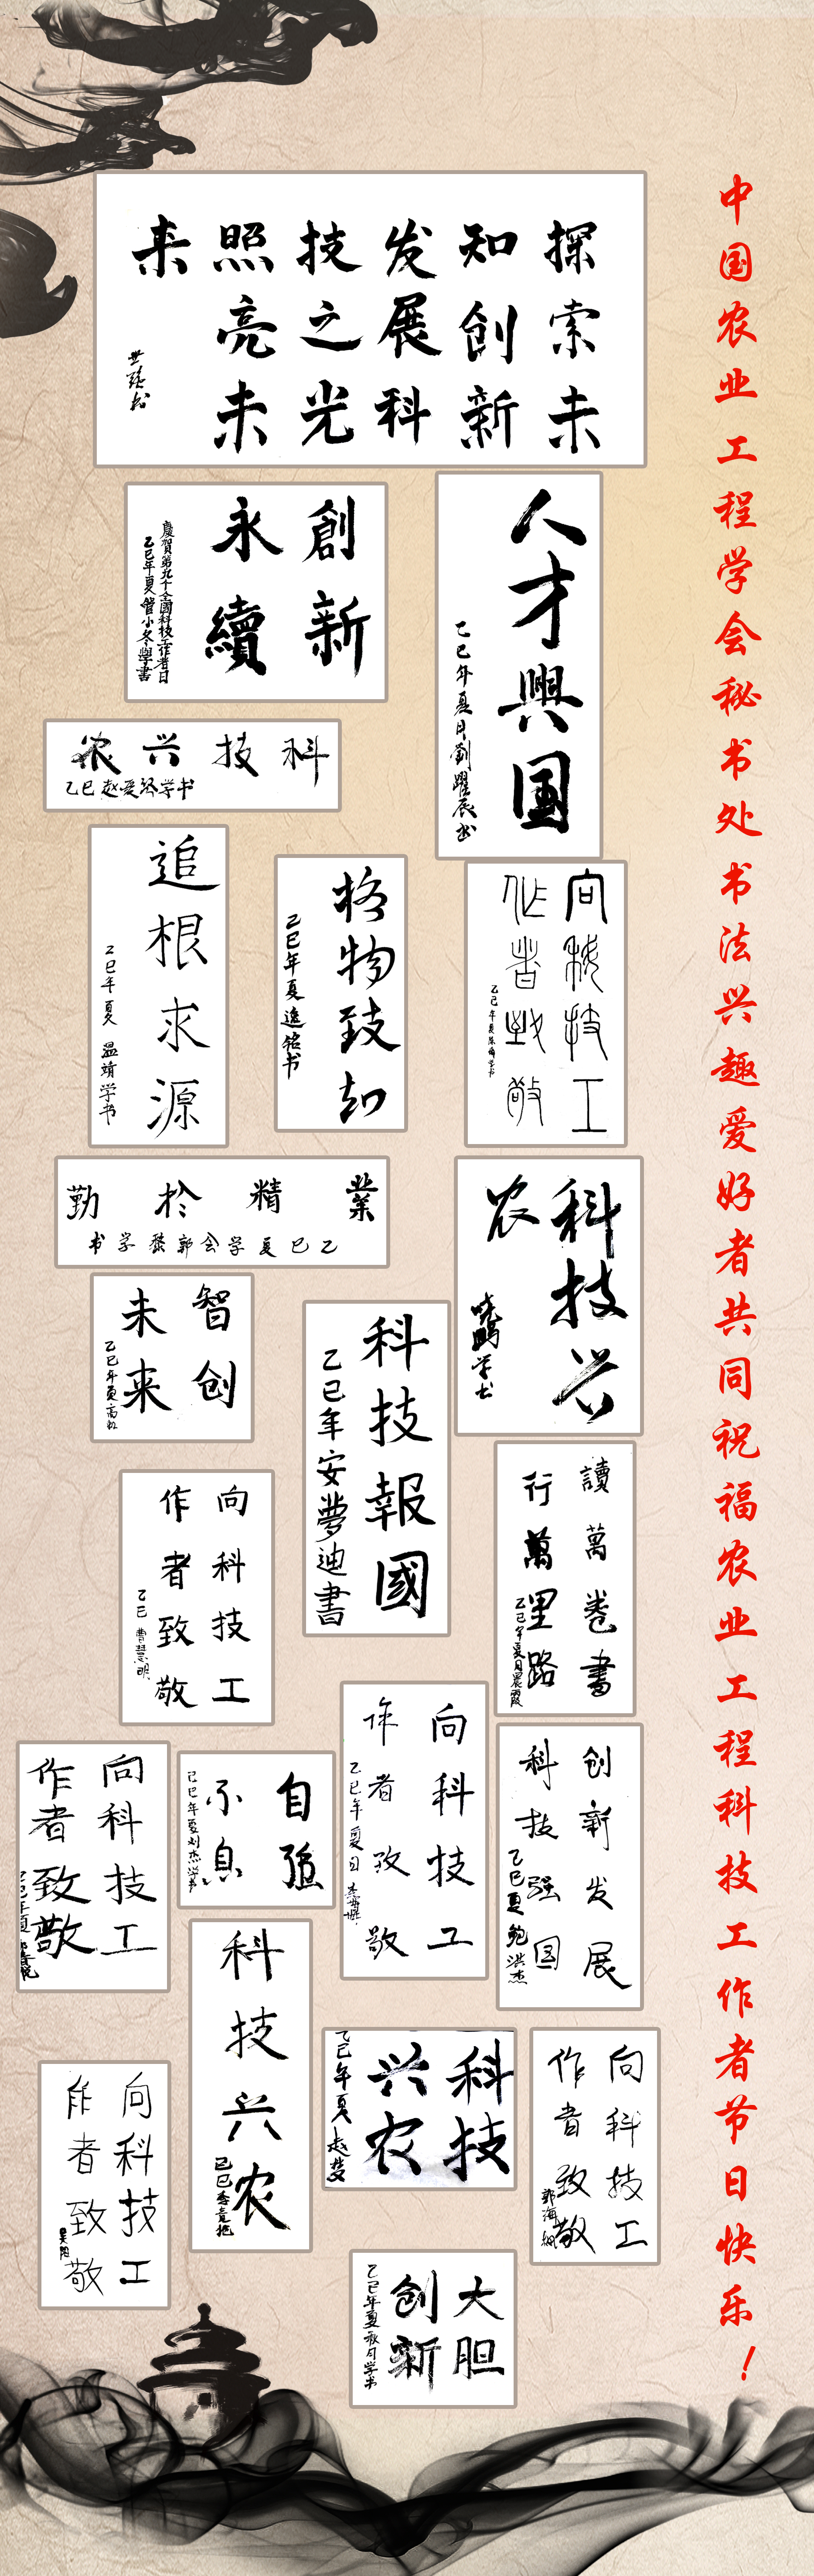 中国农业工程学会秘书处书法兴趣爱好者共同祝福农业工程科技工作者节日快乐！
探索未
知创新
发展科
技之光
照亮未
来
創新
永續
慶賀第九个全國科技工作者日
乙巳年夏管小冬學書
人才興国
乙巳年夏月劉躍辰书
科技兴农
乙巳赵爱琴学书
追根求源
乙巳年夏 温靖学书
格物致知
乙巳年夏逸铭书
向科技工
作者致敬
業精於勤
乙巳夏学会郭燊学书
科技兴
农
晓鹏学书
智创
未来
乙巳年夏高虹
科技報國
乙巳年安夢迪書
讀萬卷書
行萬里路
乙巳年夏月晨霞
向科技工
作者致敬
乙巳 曹慧明
向科技工
作者致敬
乙巳年夏日
创新发展
科技强国
乙巳夏鲍洪杰
向科技工
作者致敬
自强
不息
乙巳年夏刘杰学书
科技兴农
乙巳
科技
兴农
乙巳年夏赵梦
向科技工
作者致敬
郭海
向科技工
作者致敬
吴阳
大胆
创新
乙巳年夏秋月学书